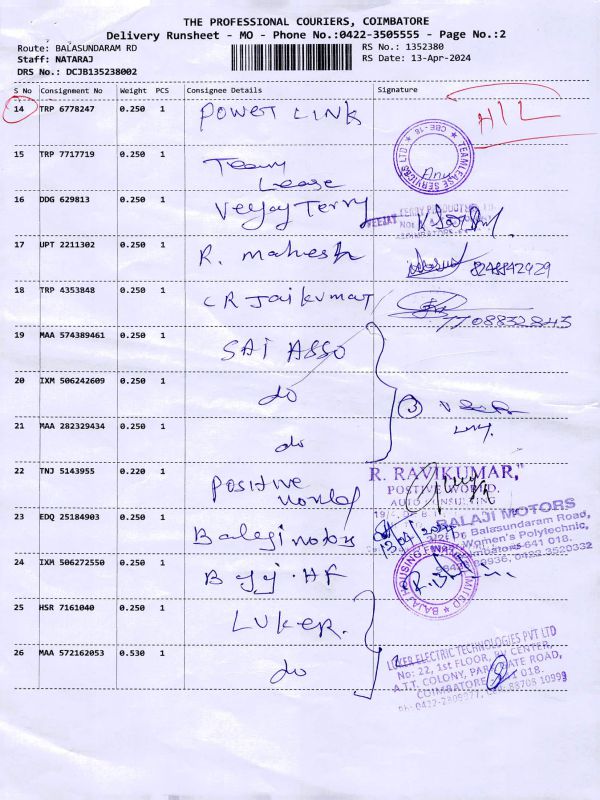 THE PROFESSIONAL COURIERS, COIMBATORE
Delivery Runsheet - MO - Phone No.:0422-3505555 - Page No.:2
Route: BALASUNDARAM RD
RS No.: 1352380
Staff: NATARAJ
RS Date: 13-Apr-2024
DRS No.: DCJB135238002
S No Consignment No Weight PCS Consignee Details Signature
14 TRP 6778247 0.250 1 POWER LINK HIL
15 TRP 7717719 0.250 1 Team
Lease
TEAMLEASE SERVICES LTD CBE-18
16 DDG 629813 0.250 1 Veejay Terry
VEEJAY TERRY PRODUCTS
17 UPT 2211302 0.250 1 R. mahesh 8248842929
18 TRP 4353848 0.250 1 CR Jaikumar 7708832843
19 MAA 574389461 0.250 1 SAI ASSO
20 IXM 506242609 0.250 1 do 3
21 MAA 282329434 0.250 1 do
22 TNJ 5143955 0.220 1 Positive
world
R. RAVIKUMAR,
POSTIVE WORLD,
AUTO CONSULTING
23 EDQ 25184903 0.250 1 Balaji motors
13/04/2024
BALAJI MOTORS
Balasundaram Road,
Women's Polytechnic,
Coimbatore-641 018.
0422-3520332
24 IXM 506272550 0.250 1 Bajaj. HF
BAJAJ HOUSING FINANCE LIMITED
25 HSR 7161040 0.250 1 LUKER.
26 MAA 572162053 0.530 1 do
LUKER ELECTRIC TECHNOLOGIES PVT LTD
No: 22, 1st FLOOR, RV CENTER,
A.T.T. COLONY, PARK GATE ROAD,
COIMBATORE 018.